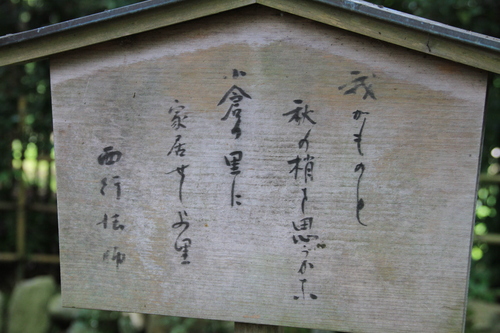 我がものと
秋の梢を思ふかな
小倉の里に
家居せしより
西行法師